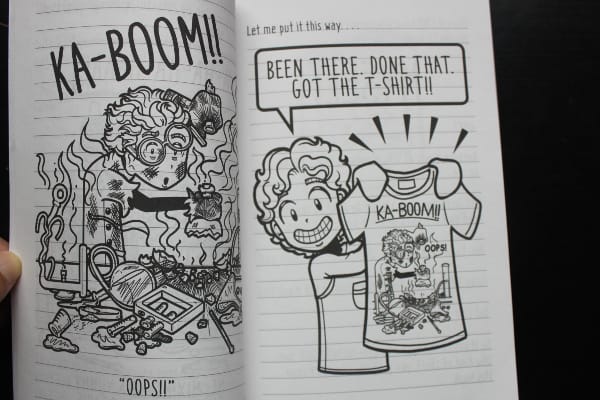 KA-BOOM!!
"OOPS!!"
Let me put it this way. . . .
BEEN THERE. DONE THAT.
GOT THE T-SHIRT!!
KA-BOOM!!
OOPS!